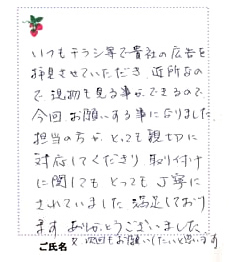 いつもチラシ等で貴社の広告を
拝見させていただき、近所なの
で、現物も見る事ができるので
今回、お願いする事になりました。
担当の方が、とっても親切に
対応してくださり、取り付け
に関しても とっても 丁寧に
されていました 満足しており
ます ありがとうございました
又 次回もお願いしたいと思います
ご氏名